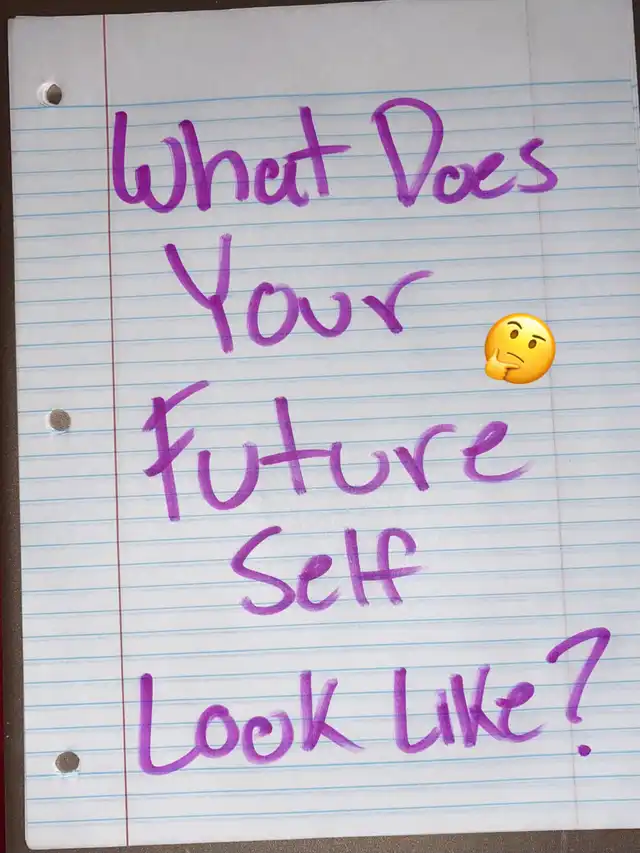 What Does
Your
Future
Self
Look Like?